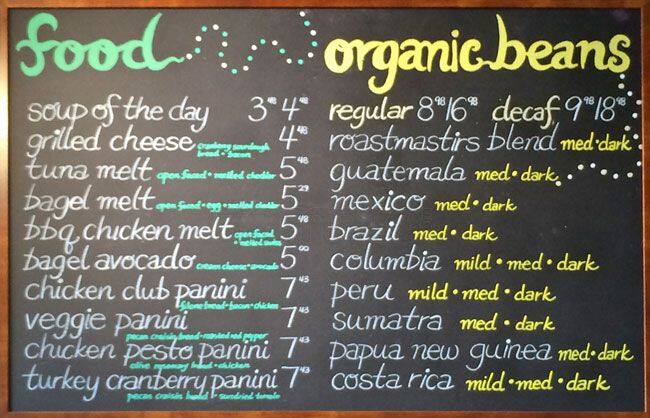 food
soup of the day 3 48 4 48
grilled cheese cranberry sourdough bread • bacon 4 48
tuna melt open faced • melted cheddar 5 48
bagel melt open faced • egg • melted cheddar 5 29
bbq chicken melt open faced • melted swiss 5 48
bagel avocado cream cheese • avocado 5 00
chicken club panini 7 43
filone bread • bacon • chicken
veggie panini 7 43
pecan craisin bread • roasted red pepper
chicken pesto panini 7 43
olive rosemary bread • chicken
turkey cranberry panini 7 43
pecan craisin bread • sundried tomato
organic beans
regular 8 98 16 98 decaf 9 98 18 98
roastmastirs blend med • dark
guatemala med • dark
mexico med • dark
brazil med • dark
columbia mild • med • dark
peru mild • med • dark
sumatra med • dark
papua new guinea med • dark
costa rica mild • med • dark